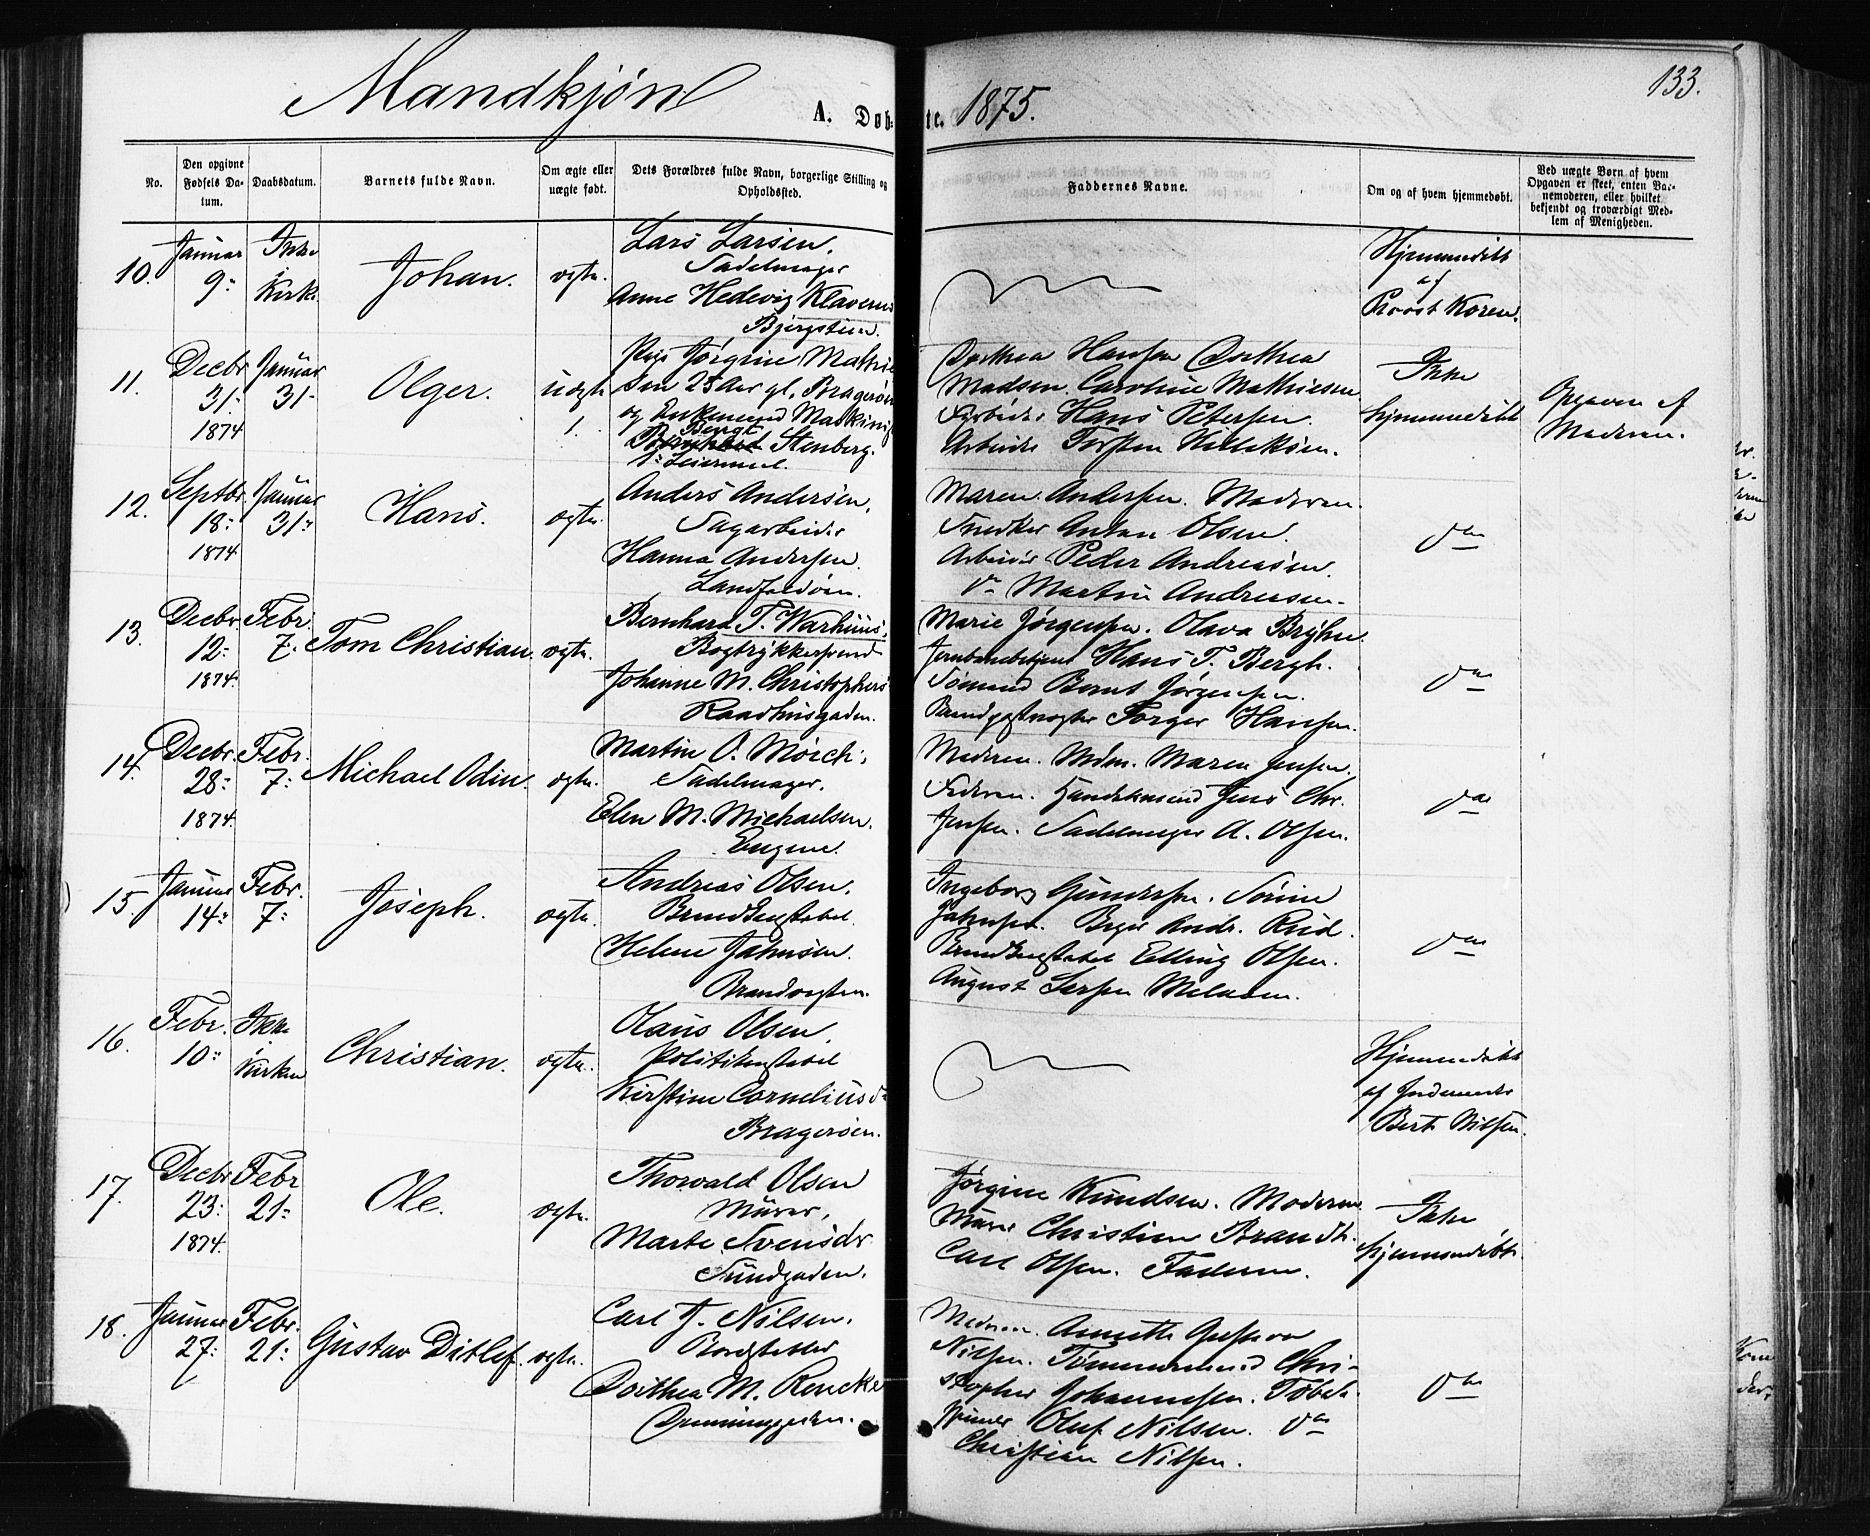 Mandkjøn
A. Døbte. 1875.
133.
No.
Den opgivne Fødsels Datum.
Daabsdatum.
Barnets fulde Navn.
Om ægte eller uægte født.
Dets Forældres fulde Navn, borgerlige Stilling og Opholdssted.
Faddernes Navne.
Om og af hvem hjemmedøbt.
Ved uægte Børn af hvem Opgaven er skeet, enten Barnemoderen, eller hvilket bekjendt og troværdigt Medlem af Menigheden.
10. Januar 9:
Ikke i Kirke
Johan.
ægte.
Lars Larsen,
Sadelmager
Anne Hedevig
Hjemmedøbt
af
Provst Koren.
11. Decbr 31: 1874
Januar 31-
Olger.
uægte 1.
Pige Jørgine
28 Aar gl. Bragerøen
og Enkemand
Bengt Stenberg.
Dorthea Hansen Dorthea
Madsen Caroline Mathiesen
Arbeider Hans Petersen.
Arbeider Torsten
Ikke
hjemmedøbt
Opgaven af
Moderen.
12. Septbr. 18: 1874
Januar 31:
Hans.
ægte.
Anders Andersen,
Sagarbeider
Hanna Andersen.
Landfaldøen.
Maren Andersen. Moderen.
Snedker Anton Olsen.
Arbeider Peder Andreasen.
do Martin Andersen.
do
13. Decbr. 12: 1874.
Febr. 7.
Tom Christian.
ægte.
Bernhard T. Warhuus,
Bogtrykkersvend
Johanne M. Christophers
Raadhusgaden.
Marie Jørgensen. Olava Bryhn.
Jernbanebetjent Hans T. Bergh.
Sømand Bernt Jørgensen.
Torger Hansen.
do
14. Decbr. 28: 1874.
Febr. 7:
Michael Odin.
ægte.
Martin O. Mørch,
Sadelmager.
Elen M. Michaelsen.
Engene.
Moderen. Mdm. Maren Jensen.
Faderen. Handelsmand Jens Chr.
Jensen. Sadelmager A. Olsen.
do
15. Januar 14:
Febr. 7:
Joseph.
ægte.
Andreas Olsen,
Brandkonstabel
Helene Jahnsen.
Brandvagten.
Ingeborg Gundersen. Sørine
Jahnsen. Andr. Ruud.
Brandkonstabel Elling Olsen.
August
do
16. Febr. 10:
Ikke i Kirken
Christian.
ægte.
Olaus Olsen,
Politikonstabel
Kirstine Corneliusd.
Bragerøen.
Hjemmedøbt
af Jordemoder
Bert. Nilsen.
17. Decbr 23: 1874.
Febr 21:
Ole.
ægte.
Thorvald Olsen
Murer,
Marte Svensdr
Sundgaden.
Jørgine Knudsen. Moderen
Murer Christian Brandt.
Carl Olsen. Faderen.
Ikke
hjemmedøbt
18. Januar 27:
Febr. 21:
Gustav Ditlef.
ægte.
Carl J. Nilsen,
Dorthea M. Rencke
Dronninggaden.
Moderen. Annette Gustava
Nilsen. Tømmermand Chri-
stopher Johannesen. Tobak-
spinder Oluf Nilsen. do
Christian Nilsen.
do